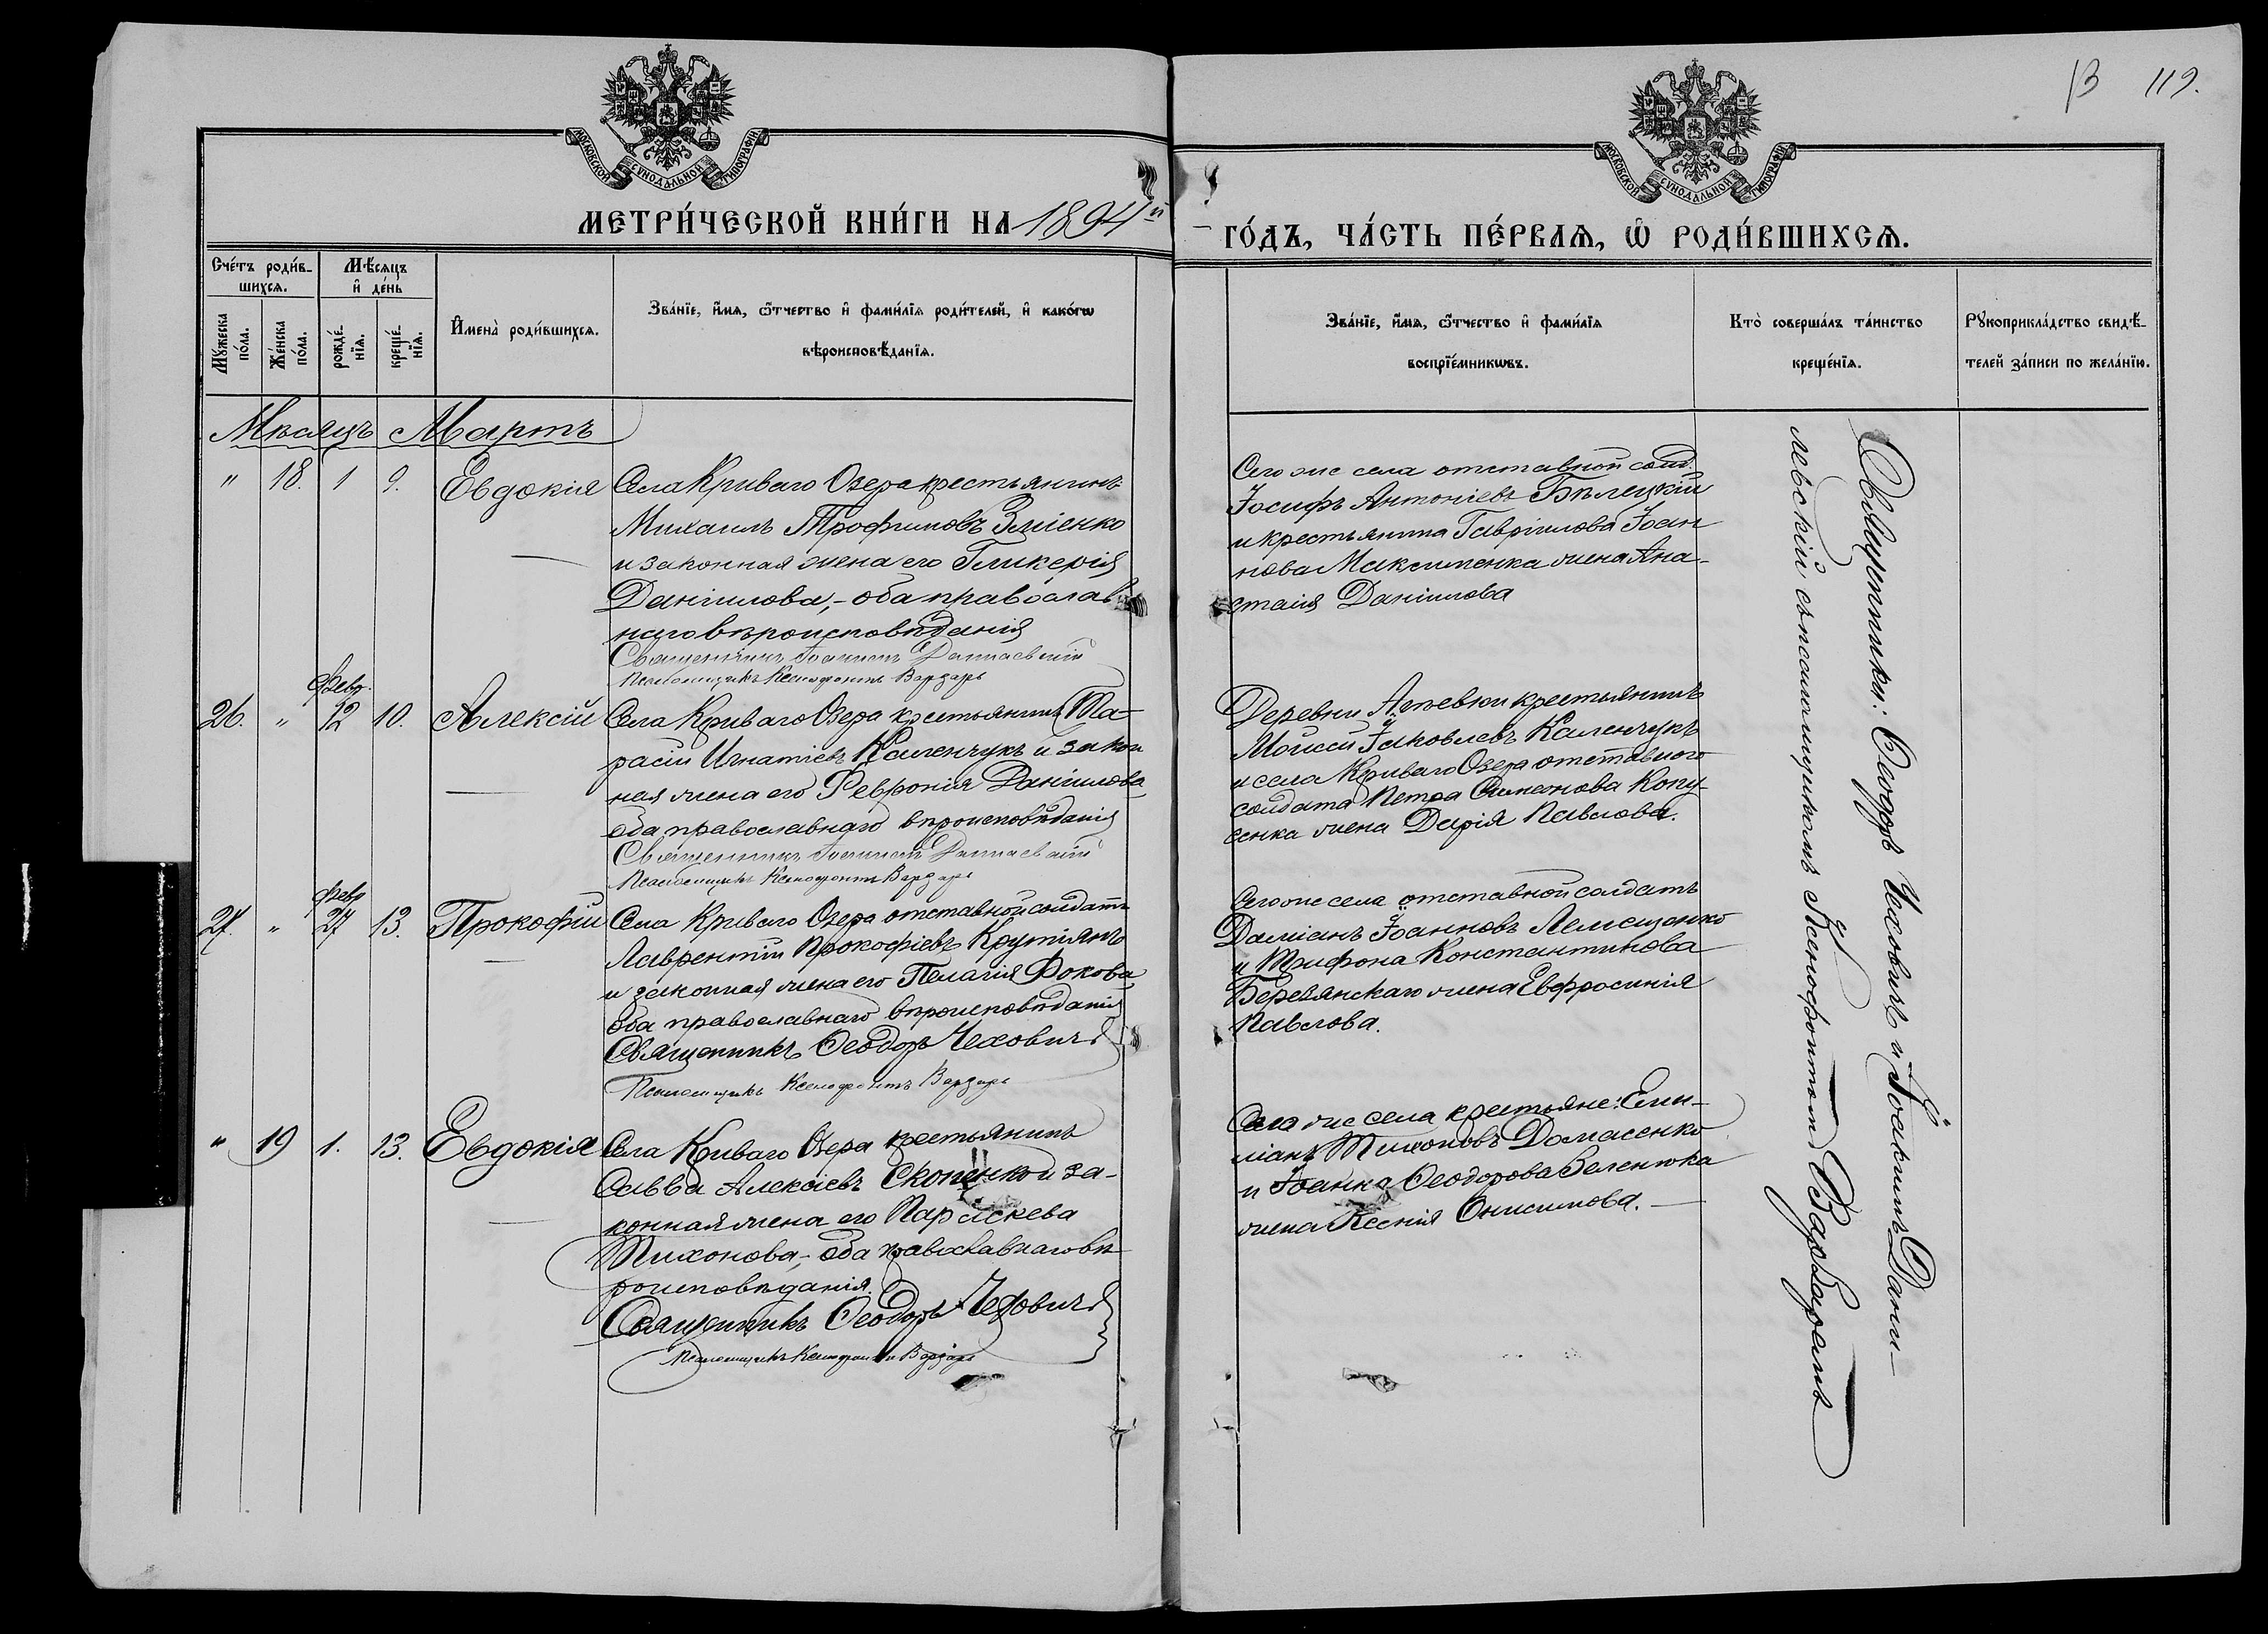 13 119.
МОСКОВСКОЙ СѴНОДАЛЬНОЙ ТИПОГРАФІИ
МОСКОВСКОЙ СѴНОДАЛЬНОЙ ТИПОГРАФІИ
МЕТРИ́ЧЕСКОЙ КНИ́ГИ НА 1894й
ГО́ДЪ, ЧА́СТЬ ПЕ́РВАѦ, Ѿ РОДИ́ВШИХСѦ.
Сче́тъ роди́в-
шихсѧ.
Мѣ́сѧцъ
и҆ де́нь
Мꙋ́жеска
по́ла.
Же́нска
по́ла.
рожде́-
нїѧ.
креще́-
нїѧ.
И҆мена̀ роди́вшихсѧ.
Зва́нїе, и҆́мѧ, ѻ҆́тчество и҆ фами́лїѧ роди́телей, и҆ како́гѡ
вѣроисповѣ́данїѧ.
Зва́нїе, и҆́мѧ, ѻ҆́тчество и҆ фами́лїѧ
воспрїе́мникѡвъ.
Кто̀ соверша́лъ та́инство
креще́нїѧ.
Рꙋкоприкла́дство свидѣ́-
телей за́писи по жела́нїю.
Мѣсяцъ Мартъ
" 18. 1 9. Евдокія
Села Криваго Озера крестьянинъ
Михаилъ Трофимовъ Зміенко
и законная жена его Гликерія
Даніилова,- оба православ
наго вѣроисповѣданія
Священникъ Іоакимъ Данилевскій
Псаломщикъ Ксенофонтъ Варзаръ
Сего же села отставной солд.
Іосифъ Антоніевъ Бѣлецкій
и крестьянина Гавріилова Іоан
нова Максименка жена Ана-
стасія Даніилова
Февр.
26. " 12 10. Алексій
Села Криваго Озера крестьянинъ Та-
расій Игнатіевъ Каленчукъ и закон
ная жена его Февронія Даніилова
оба православнаго вѣроисповѣданія
Священникъ Іоакимъ Данилевскій
Псаломщикъ Ксенофонтъ Варзаръ
Деревни крестьянинъ
Мойсей Іаковлевъ Каленчукъ
и села Криваго Озера отставного
солдата Петра Симеонова Копу-
сенка жена Дарія Павлова.
Февр
27. " 27 13. Прокофій
Села Криваго Озера отставной солдатъ
Лаврентій Прокофіевъ Крутіянъ
и законная жена его Пелагія Фокова
оба православнаго вѣроисповѣданія
Священникъ Ѳеодоръ Чеховичъ
Псаломщикъ Ксенофонтъ Варзаръ
Сего же села отставной солдатъ
Даміанъ Іоанновъ Лемещенко
и Трифона Константинова
Березянскаго жена Евфросинія
Павлова.
" 19 1. 13. Евдокія
Села Криваго Озера крестьянинъ
Савва Алексіевъ Скопенко и за-
конная жена его Параскева
Тихонова,- оба православнаго вѣ-
роисповѣданія.
Священникъ Ѳеодоръ Чеховичъ
Псаломщикъ Ксенофонтъ Варзаръ
Сего же села крестьяне: Еми-
ліанъ Тихоновъ Домасенко
и Іоанна Ѳеодорова Беленюка
жена Ксенія Онисимова.
Священники: Ѳеодоръ Чеховичъ и Іоакимъ Дани-
левскій съ псаломщикомъ Ксенофонтомъ Варзаромъ